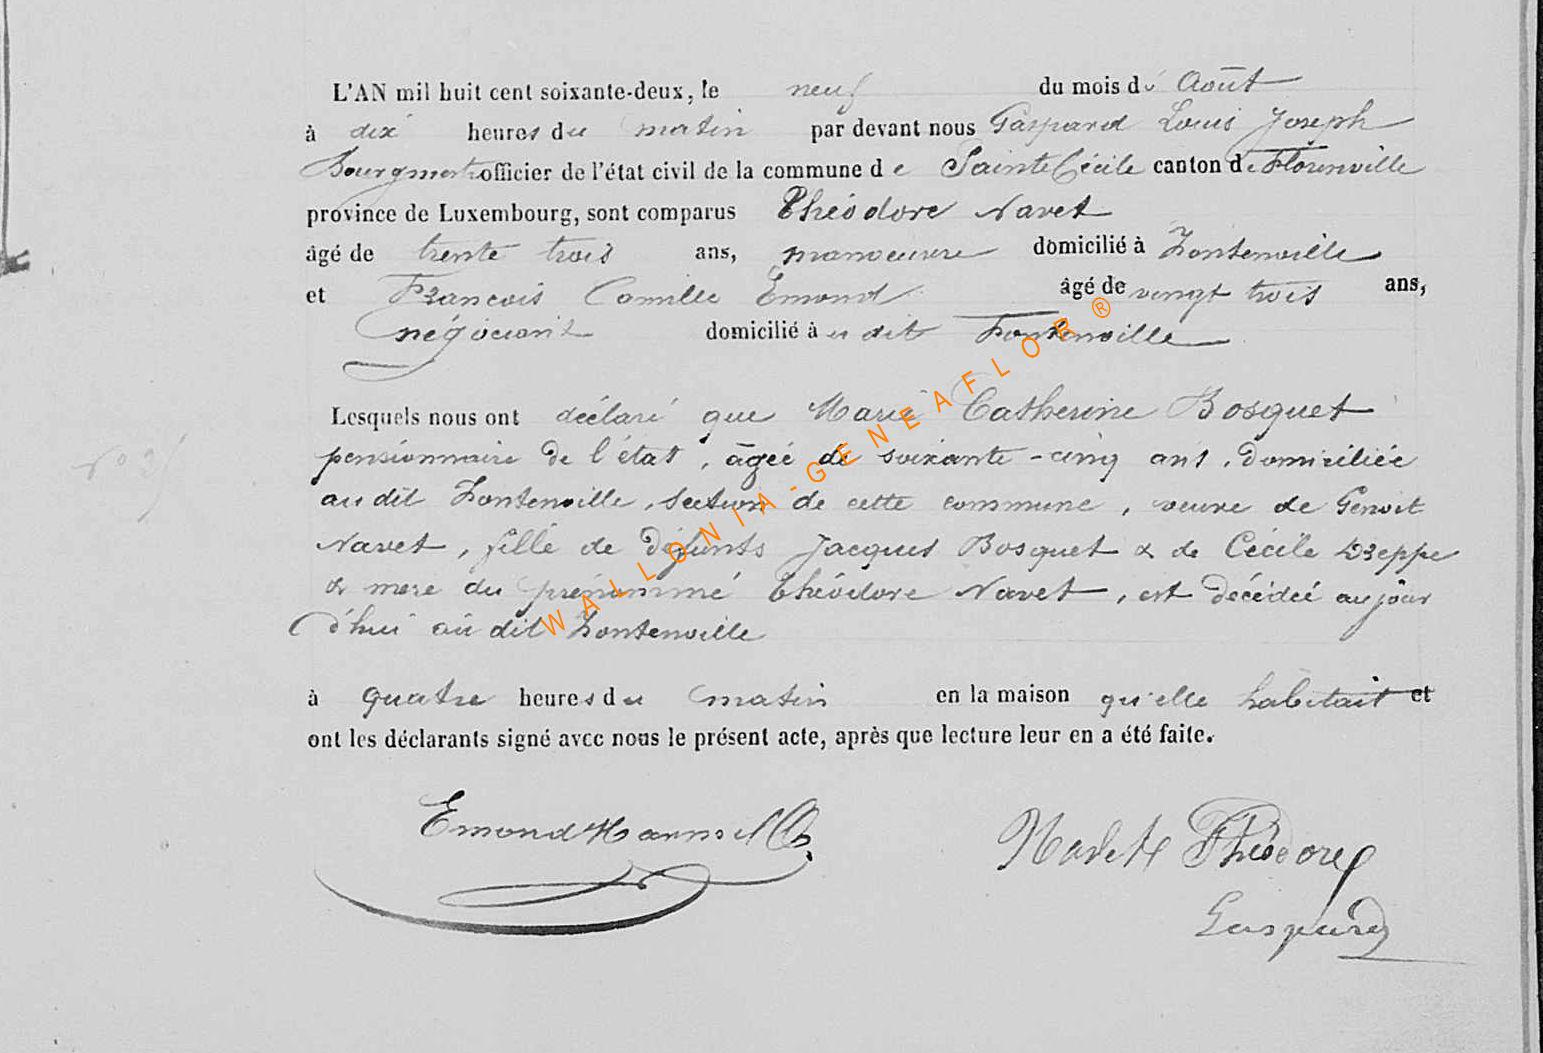 L'AN mil huit cent soixante-deux, le neuf du mois d' Août
à dix heures du matin par devant nous Gaspard Louis Joseph
Bourgmestre officier de l'état civil de la commune de Sainte Cécile canton de Florenville
province de Luxembourg, sont comparus Théodore Navet
âgé de trente trois ans, manoeuvre domicilié à Fontenoille
et François Camille Emond âgé de vingt trois ans,
négociant domicilié à u dit Fontenoille
Lesquels nous ont déclaré que Marie Catherine Bosquet
pensionnaire de l'état, âgée de soixante-cinq ans, domiciliée
au dit Fontenoille, section de cette commune, veuve de Benoit
Navet, fille de défunts Jacques Bosquet & de Cécile
& mère du prénommé Théodore Navet, est décédée aujour
d'hui au dit Fontenoille
à quatre heures du matin en la maison qu'elle habitait et
ont les déclarants signé avec nous le présent acte, après que lecture leur en a été faite.
Emond
Navet Théodore
Gaspard
WALLONIA-GENEAFLOR ®